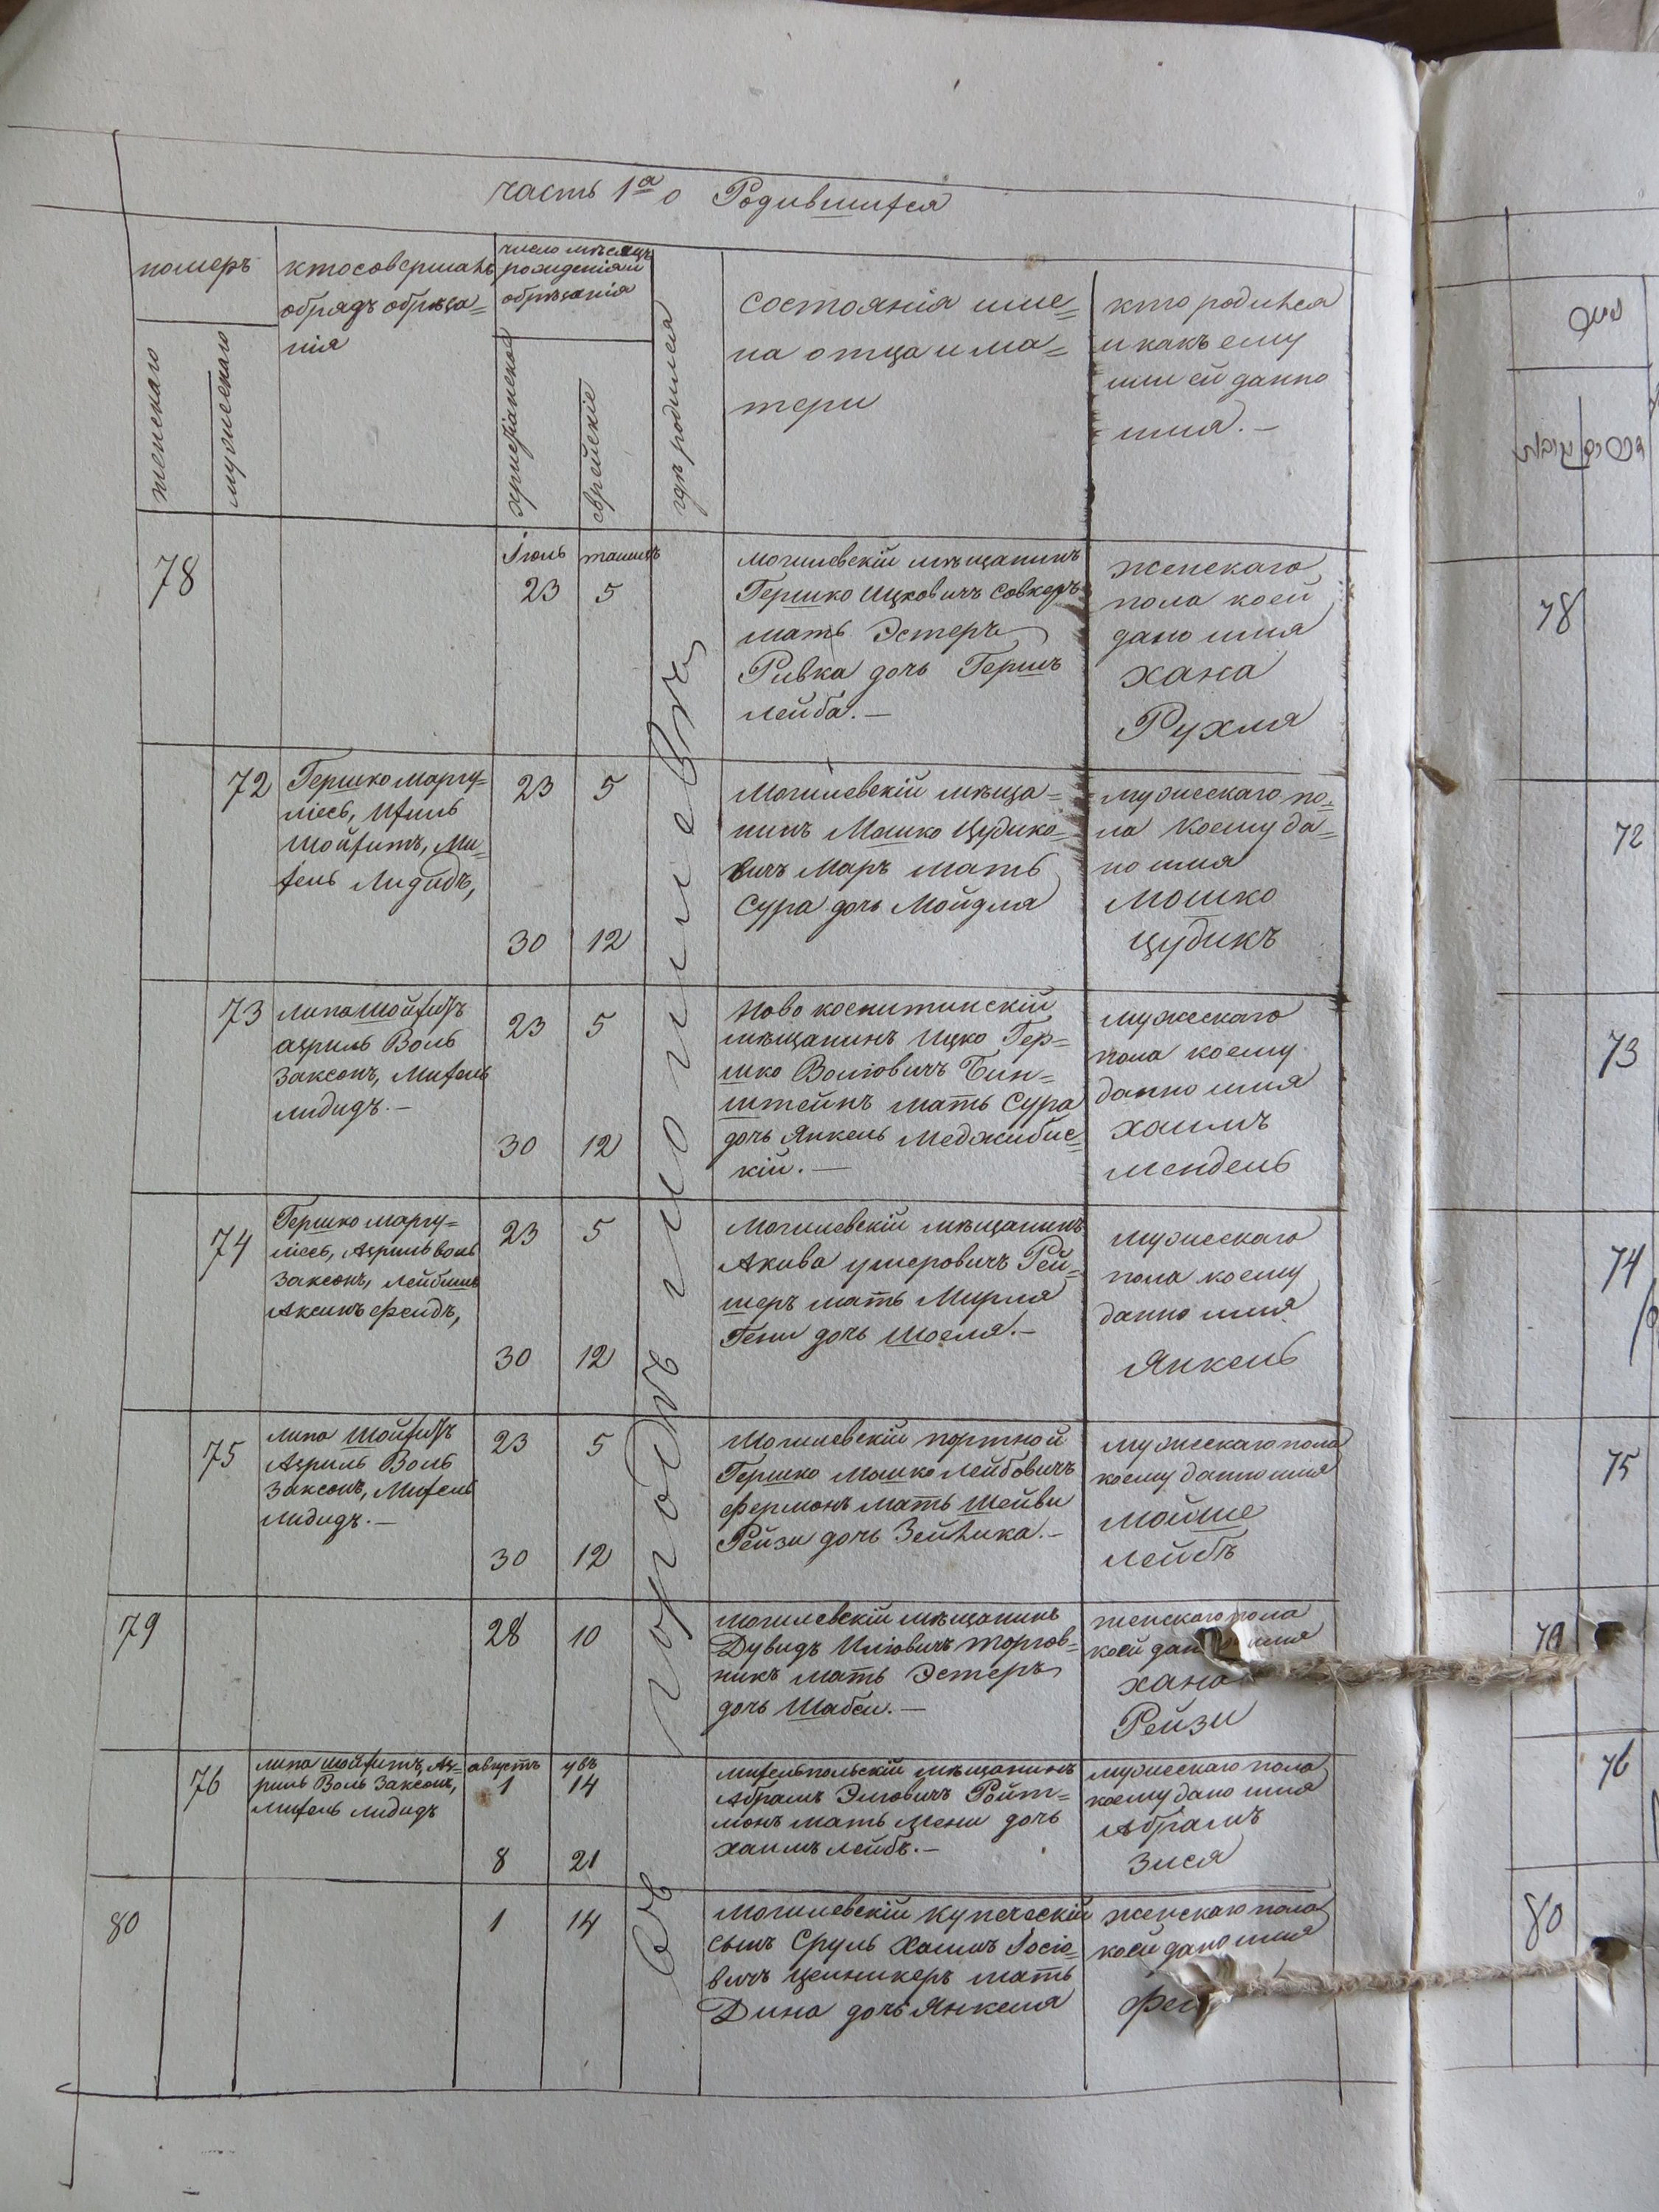 часть 1а о Родившихся
номеръ
женскаго
мужескаго
кто совершалъ
обрядъ обрѣза=
нія
число мѣсяцъ
рожденія и
обрѣзанія
христіанское
еврейскіе
гдѣ родился
состоянія име=
на отца и ма=
тери
кто родился
и какъ ему
или ей данно
имя.—
въ городѣ могилевѣ
78
Іюль
23
5
могилевскій мѣщанинъ
Гершко Ицковичъ
мать Эстеръ
Ривка дочь Гершъ
лейба.—
женскаго
пола коей
дано имя
хана
Рухля
72
Гершко маргу=
ліесъ, Ихиль
шойхитъ, Ми=
хель Лидидъ,
23
5
30
12
Могилевскій мѣща=
нинъ Мошко Цудико=
вичъ Маръ мать
Сура дочь Мойдля
мужескаго по=
ла коему да=
но имя
мошко
цудикъ
73
липа шойхитъ
азриль Воль
Заксонъ, Михель
лидидъ.—
23
5
30
12
Ново
мѣщанинъ Ицко Гер=
шко Воліовичъ Бин=
штейнъ мать Сура
дочь Янкель Меджибис=
кій.—
мужескаго
пола коему
данно имя
хаимъ
мендель
74
Гершко маргу=
ліесъ, Азриль воль
Заксонъ, лейбишъ
23
5
30
12
Могилевскій мѣщанинъ
Акива умеровичъ Рей=
шеръ мать Мирля
Гени дочь Шоеля.—
мужескаго
пола коему
данно имя
Янкель
75
липа шойхитъ
Азриль Воль
Заксонъ, Михель
лидидъ.—
23
5
30
12
Могилевскій портной
Гершко Мошко Лейбовичъ
фермонъ мать Шейви
Рейзи дочь Зейлика.—
мужескаго пола
коему данно имя
мойше
лейбъ
79
28
10
могилевскій мѣщанинъ
Дувидъ Иліовичъ торгов=
никъ мать Эстеръ
дочь Шабси.—
женскаго пола
коей дан имя
хана
Рейзи
76
липа шойхитъ, Аз=
риль Воль Заксонъ,
Михель лидидъ
августъ
1
14
8
21
мѣщанинъ
Абрамъ Эліовичъ Ройт=
монъ мать Цени дочь
хаимъ лейбъ.—
мужескаго пола
коему дано имя
Абрамъ
Зися
80
1
14
Могилевскій купеческій
сынъ Сруль Хаимъ Іосіо=
вичъ Цейникеръ мать
Дина дочь Янкеля
женскаго пола
коей дано имя
78
72
73
74
75
76
80